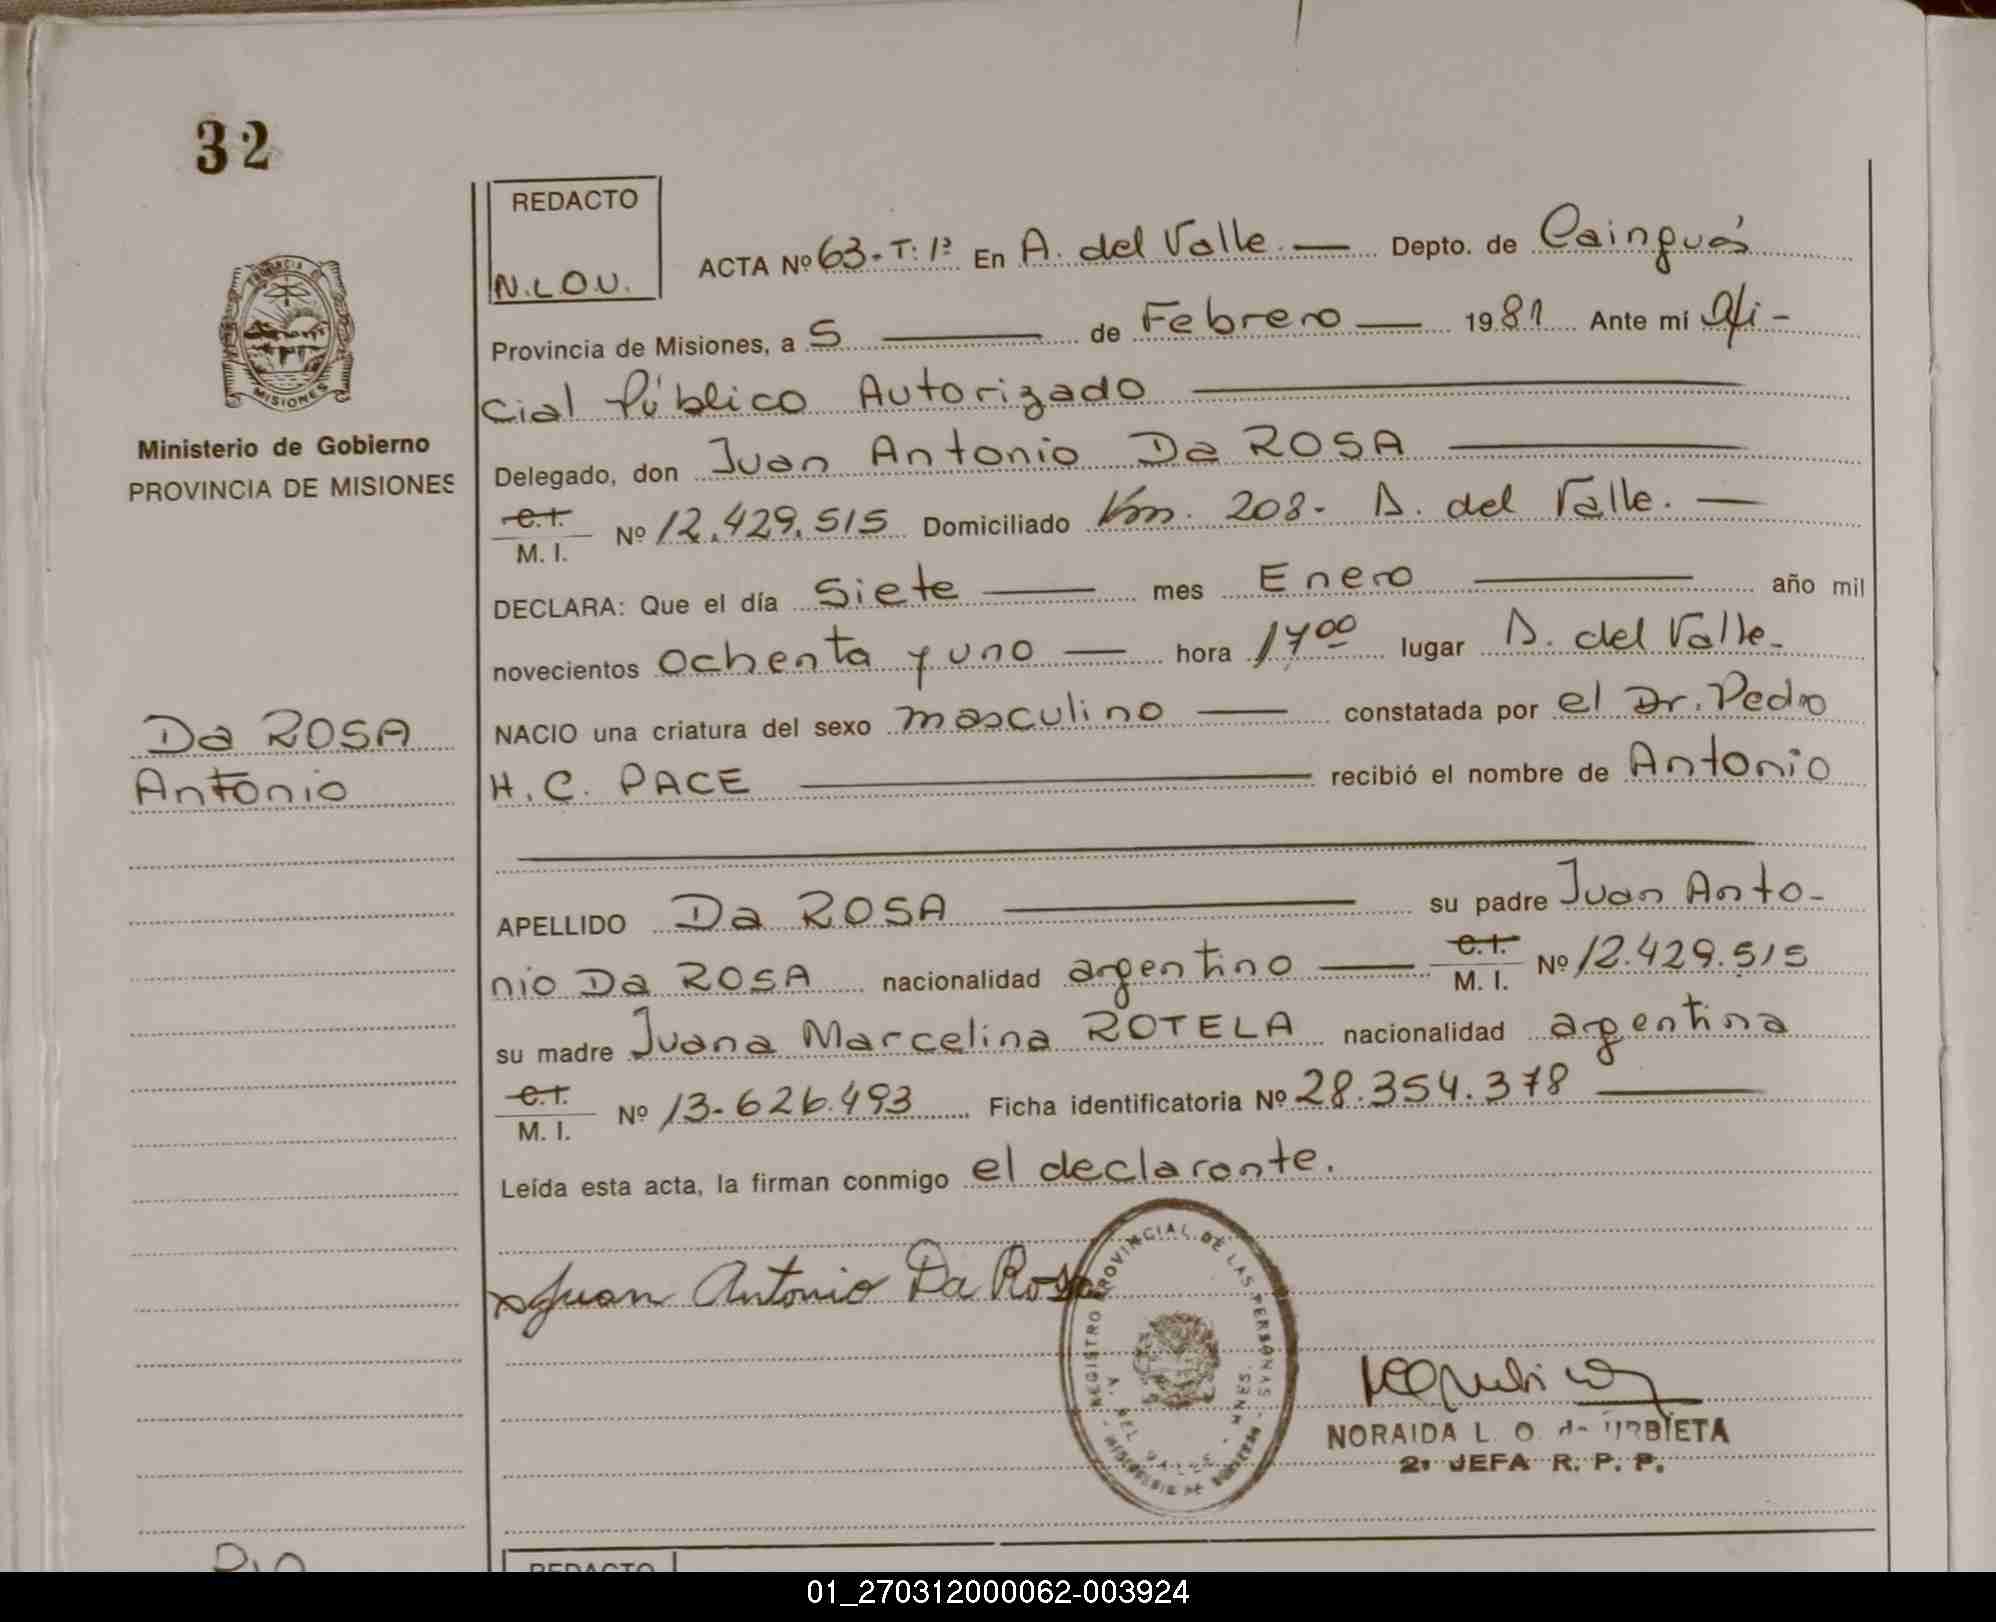 32
REDACTO
N.L.O.U.
ACTA Nº 63-T:1º En A. del Valle — Depto. de Cainguás
Provincia de Misiones, a 5 — de Febrero — 1981 Ante mí Ofi-
cial Público Autorizado —
Delegado, don Juan Antonio Da ROSA —
C.I.
M. I. Nº 12.429.515 Domiciliado Km. 208- A. del Valle. —
DECLARA: Que el día Siete — mes Enero — año mil
novecientos ochenta y uno — hora 17⁰⁰ lugar A. del Valle-
NACIO una criatura del sexo masculino — constatada por el Dr. Pedro
H. C. PACE — recibió el nombre de Antonio
APELLIDO Da ROSA — su padre Juan Anto-
nio Da ROSA nacionalidad argentino — C.I. M. I. Nº 12.429.515
su madre Juana Marcelina ROTELA nacionalidad argentina
C.I.
M. I. Nº 13-626.493 Ficha identificatoria Nº 28.354.378 —
Leída esta acta, la firman conmigo el declarante.
Juan Antonio Da Rosa
REGISTRO PROVINCIAL DE LAS PERSONAS
A. DEL VALLE
MISIONES
NORAIDA L. O. de URBIETA
2ª JEFA R. P. P.
PROVINCIA DE
MISIONES
Ministerio de Gobierno
PROVINCIA DE MISIONES
Da ROSA
Antonio
REDACTO
01_270312000062-003924